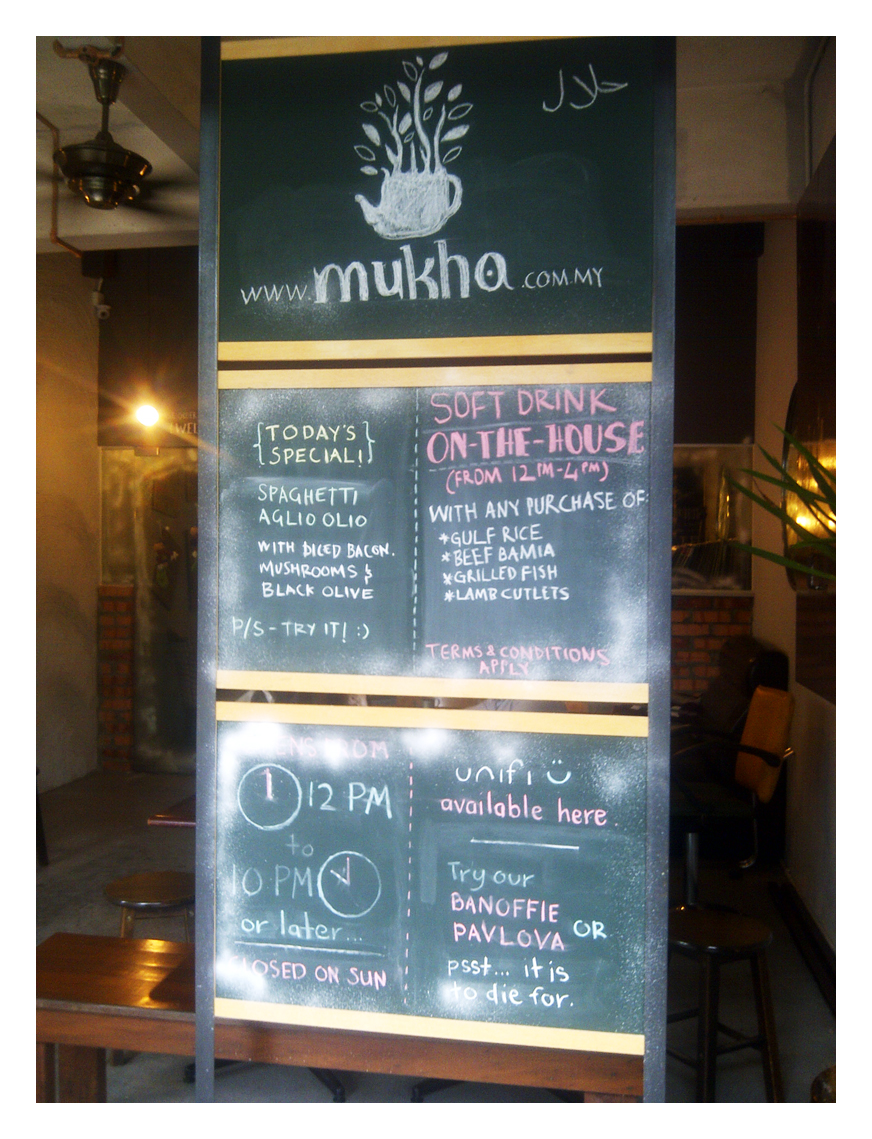 حلال
WWW.mukha.COM.MY
{TODAY'S
SPECIAL!}
SPAGHETTI
AGLIO OLIO
WITH DICED BACON.
MUSHROOMS &
BLACK OLIVE
P/S - TRY IT! :)
SOFT DRINK
ON-THE-HOUSE
(FROM 12PM-4PM)
WITH ANY PURCHASE OF:
*GULF RICE
*BEEF BAMIA
*GRILLED FISH
*LAMB CUTLETS
TERMS & CONDITIONS
APPLY
OPENS FROM
12 PM
to
10 PM
or later...
CLOSED ON SUN
unifi Ü
available here.
Try our
BANOFFIE
PAVLOVA OR
psst... it is
to die for.